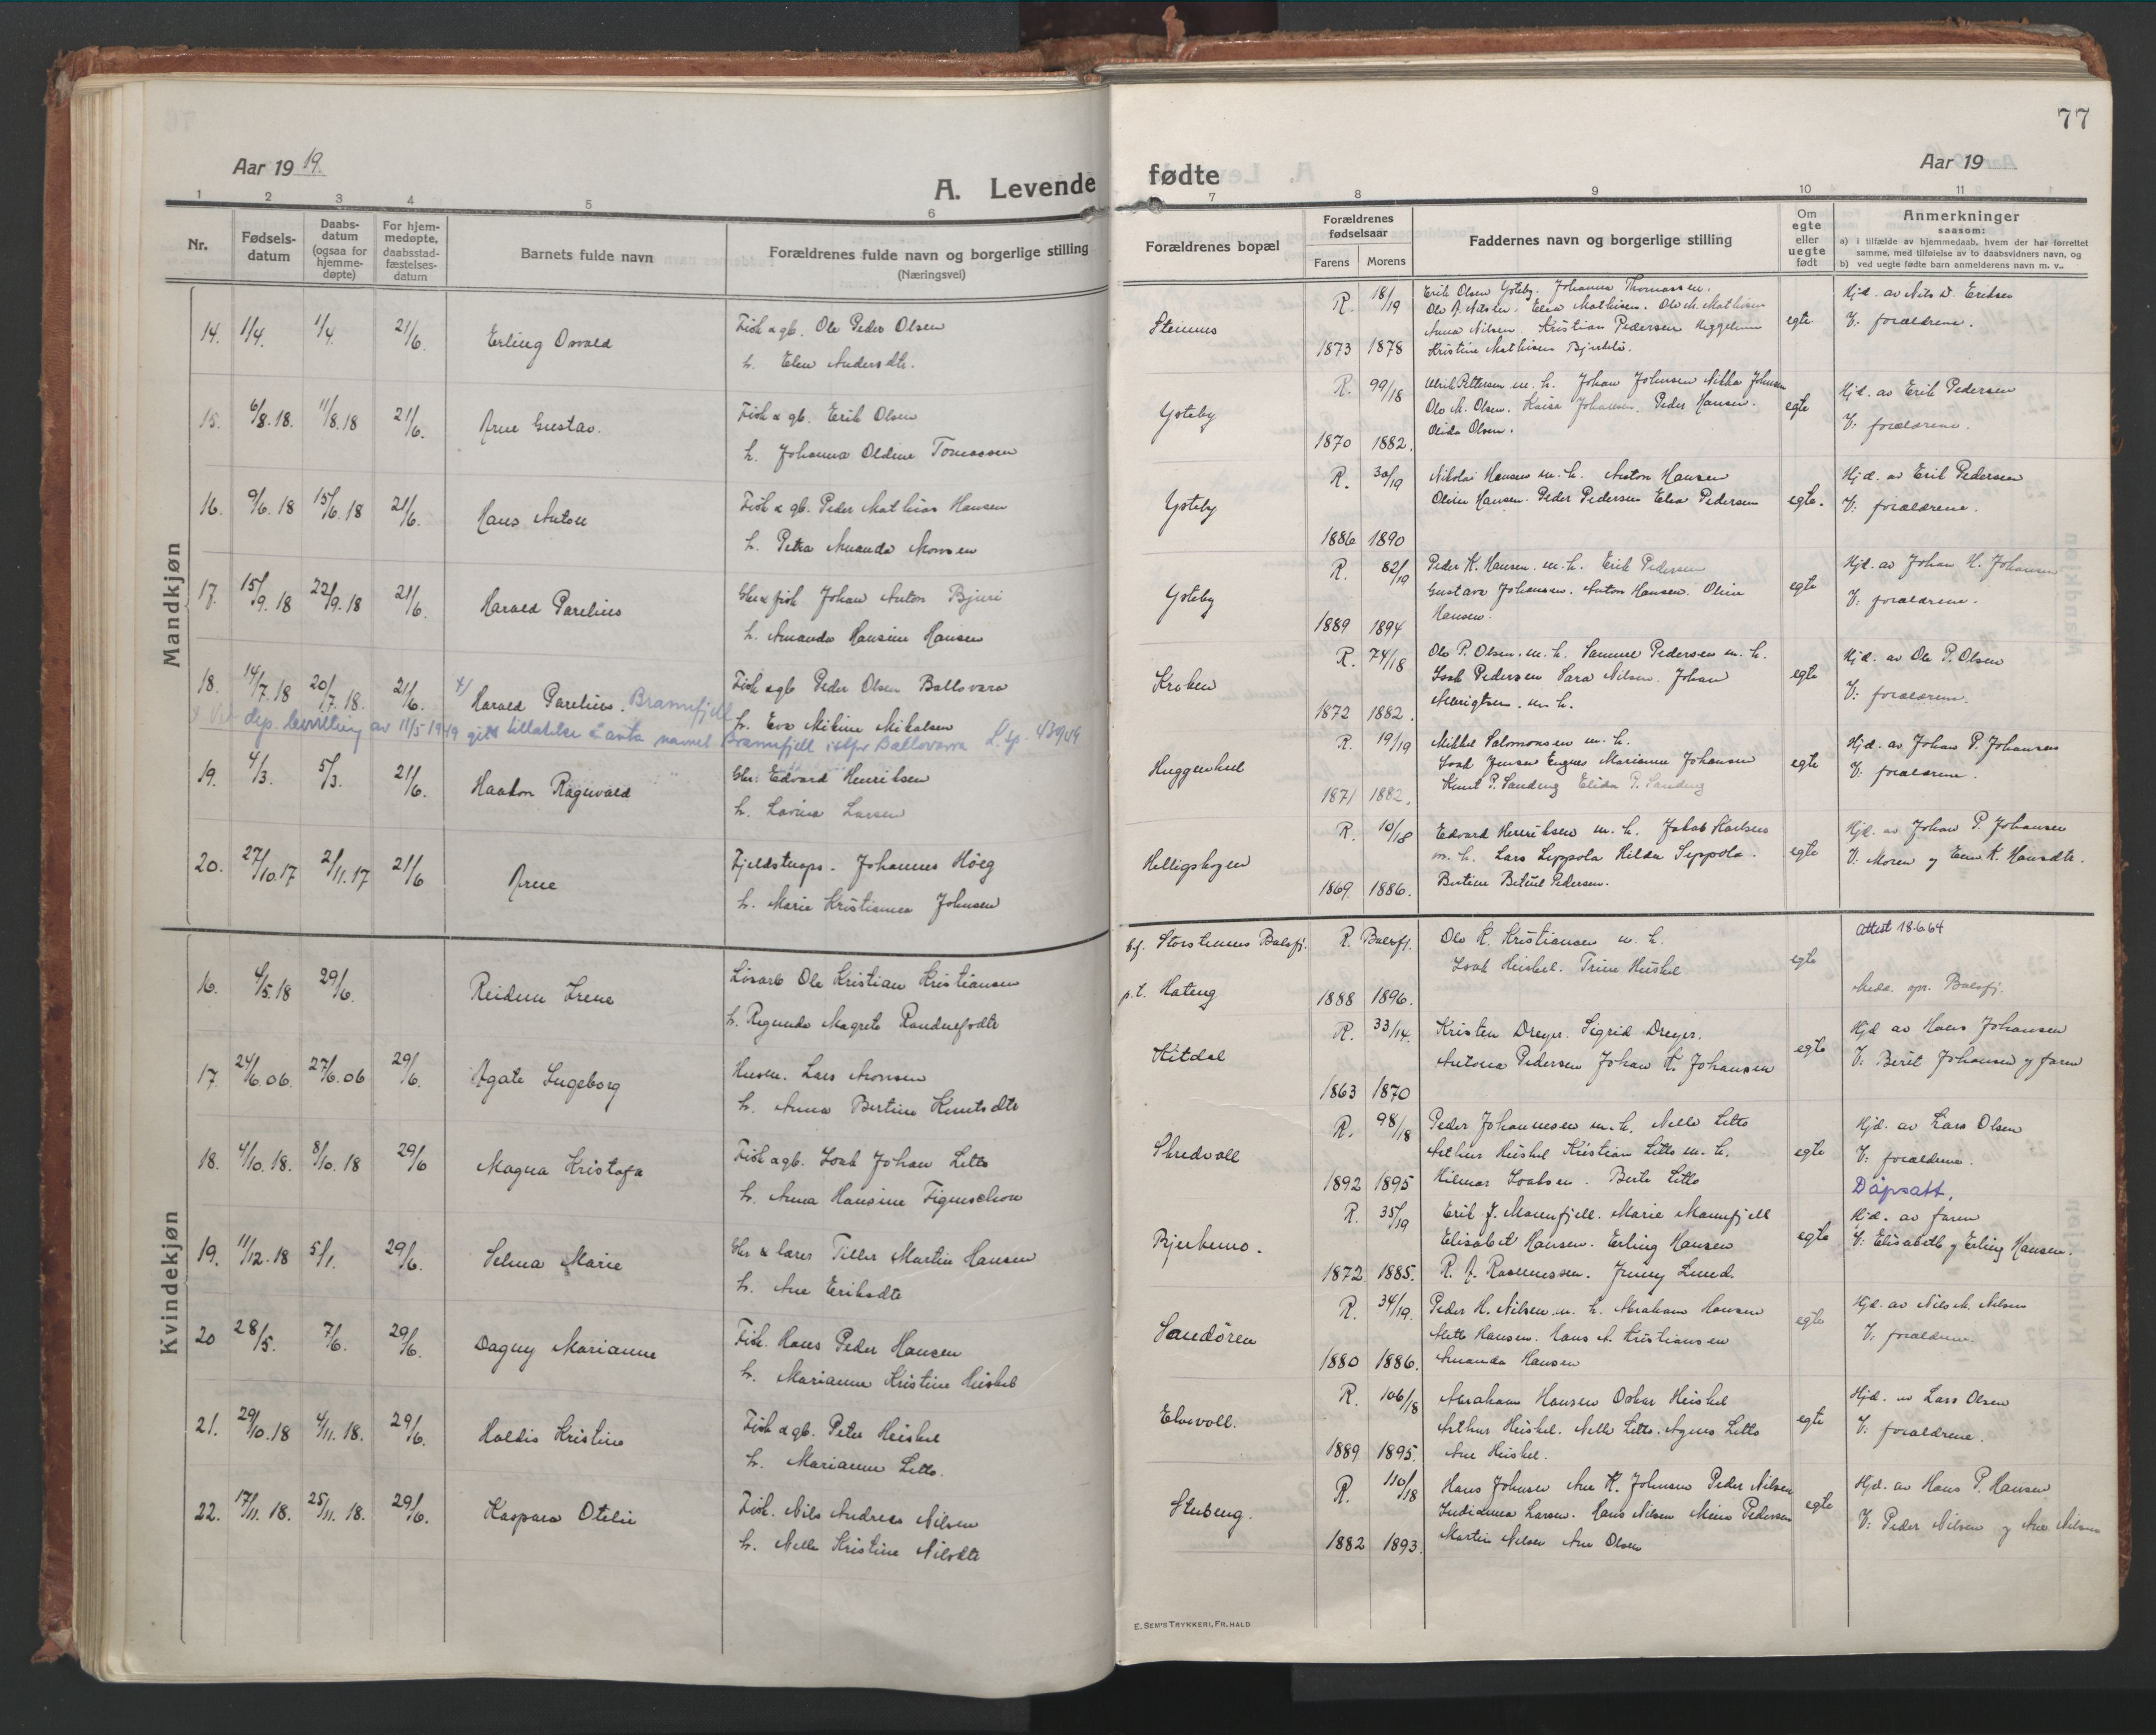 77
Aar 19 19.
A. Levende
fødte
Aar 19
1 2 3 4 5 6
7 8 9 10 11
Nr.
Fødsels-
datum
Daabs-
datum
(ogsaa for
hjemme-
døpte)
For hjem-
medøpte,
daabsstad-
fæstelses-
datum
Barnets fulde navn
Forældrenes fulde navn og borgerlige stilling
(Næringsvei)
Forældrenes bopæl
Forældrenes
fødselsaar
Farens Morens
Faddernes navn og borgerlige stilling
Om
egte
eller
uegte
født
Anmerkninger
saasom:
a) i tilfælde av hjemmedaab, hvem der har forrettet
samme, med tilføielse av to daabsvidners navn, og
b) ved uegte fødte barn anmelderens navn m. v.
Mandkjøn
14. 1/4. 1/4. 21/6. Erling Osvald
Fisk & gb. Ole Peder Olsen
h. Elen Andersdtr.
Steinnes R. 18/19 1873 1878
Erik Olsen Goteby. Johanna Thomassen.
Ole A. Nilsen. Elea Mathisen. Ole M. Mathisen
Anna Nilsen. Kristian Pedersen
Kristine Mathisen
egte
Hjd. av Nils D. Eriksen
V: forældrene.
15. 6/8.18. 11/8.18 21/6. Arne Gustav.
Fisk & gb. Erik Olsen
h. Johanna Oldine Tomassen
Goteby R. 99/18 1870 1882.
Ulrik Pettersen m. h. Johan Johnsen Nikka Johnsen
Ole M. Olsen. Kaisa Johansen. Peder Hansen.
Olida Olsen.
egte
Hjd. av Erik Pedersen
V: forældrene.
16. 9/6.18 15/6.18 21/6. Hans Anton
Fisk & gb. Peder Mathias Hansen
h. Petra Amanda Monsen
Goteby R. 30/19 1886 1890
Nikolai Hansen m. h. Anton Hansen
Oline Hansen. Peder Pedersen Elea Pedersen
egte.
Hjd. av Erik Pedersen
V: forældrene.
17. 15/9.18 22/9.18 21/6. Harald Parelius
Gbr & fisk Johan Anton Bjuri
h. Amanda Hansine Hansen
Goteby R. 82/19 1889 1894
Peder K. Hansen. m. h. Erik Pedersen
Gustava Johansen. Anton Hansen. Oline
Hansen.
egte
Hjd. av Johan H. Johansen
V: forældrene.
18. 14/7.18 20/7.18. 21/6. x) Harald Parelius. Brannfjell
Fisk & gb Peder Olsen Ballovara
h. Eva Mikine Mikalsen
x Ved dep. bevilling av 11/5 1949 gitt tillatelse å anta navnet Brannfjell istfor Ballovarra 439/49
Kroken R. 74/18 1872 1882.
Ole P. Olsen. m. h. Samuel Pedersen m. h.
Isak Pedersen Sara Nilsen. Johan
m. h.
egte
Hjd. av Ole P. Olsen
V: forældrene.
19. 4/3. 5/3. 21/6. Haakon Ragnvald
Gbr. Edvard Henriksen
h. Lovina Larsen
R. 19/19 1871 1882.
Mikkel Salomonsen m. h.
Isak Jensen Engnes Marianne Johansen
Knut P. Sandeng Elida P. Sandeng
egte
Hjd. av Johan P. Johansen
V: forældrene.
20. 27/10.17 2/11.17 21/6 Arne
Fjeldstueps. Johannes Høeg
h. Marie Kristianna Johnsen
Helligskogen R. 10/18 1869 1886.
Edvard Henriksen m. h. Jakob Karlsen
m. h. Lars Seppola Hilda Seppola.
Bertine Betuel Pedersen.
egte
Hjd. av Johan P. Johansen
V. Moren og K. Hansdtr.
Kvindekjøn
16. 4/5.18 29/6. Reidun Irene
Løsarb Ole Kristian Kristiansen
h. Regunda Magreta Randinefødt
bf. Storsteinnes Balsfj. R. Balsfj.
p.t. Hateng 1888 1896.
Ole K. Kristiansen m. h.
Isak Heiskel. Trine Heiskel
egte
Attest 18.6.64
Medd. spr. Balsfj.
17. 24/6.06. 27/6.06 29/6. Agate Ingeborg
Husm. Lars Monsen
h. Anna Bertine Knutsdtr
Kitdal R. 33/14. 1863 1870
Kristen Dreyer. Sigrid Dreyer.
Antona Pedersen Johan K. Johansen
egte
Hjd av Hans Johansen
V: Berit Johansen og faren
18. 4/10.18. 8/10.18 29/6 Magna Kristofa
Fisk & gb. Isak Johan Litto
h. Anna Hansine Figenschou
Skredvoll R. 98/18 1892 1895
Peder Johannesen m. h. Nelle Litto
Arthur Heiskel Kristian Litto m. h.
Hilmar Isaksen. Berle Litto
egte
Hjd. av Lars Olsen
V: forældrene.
Dåpsatt.
19. 11/12.18 5/1. 29/6. Selma Marie
Gbr & lærer Tiller Martin Hansen
h. Ane Eriksdtr
Bjerkemo. R. 35/19 1872 1885.
Erik J. Mannfjell. Marie Mannfjell
Elisabet Hansen. Erling Hansen
R. A. Rasmussen. Jenny Lund.
egte
Hjd. av faren
V: Elisabeth og Erling Hansen.
20 28/5. 7/6. 29/6. Dagny Marianne
Fisk. Hans Peder Hansen
h. Marianne Kristine Heiskel
Sandøren R. 34/19. 1880 1886.
Peder H. Nilsen m. h. Abraham Hansen
Mette Hansen. Hans A. Kristiansen
Amanda Hansen
egte
Hjd. av Nils M. Nilsen
V. forældrene.
21. 29/10.18 4/11.18. 29/6. Haldis Kristine
Fisk & gb. Peter Heiskel
h. Marianne Litto.
Elvevoll. R. 106/18 1889 1895.
Abraham Hansen Oskar Heiskel
Arthur Heiskel. Nelle Litto. Agnes Litto
Ane Heiskel.
egte
Hjd. av Lars Olsen
V: forældrene.
22. 17/11.18. 25/11.18. 29/6. Kaspara Otelie
Fisk. Nils Andreas Nilsen
h. Nelle Kristine Nilsdtr
Stubeng. R. 110/18 1882 1893.
Hans Johnsen Ane K. Johnsen Peder Nilsen
Indianna Larsen. Hans Nilsen Mina Pedersen
Martin Nilsen Ane Olsen
egte
Hjd. av Hans P. Hansen
V: Peder Nilsen og Ane Nilsen
E. SEM'S TRYKKERI, FR.HALD